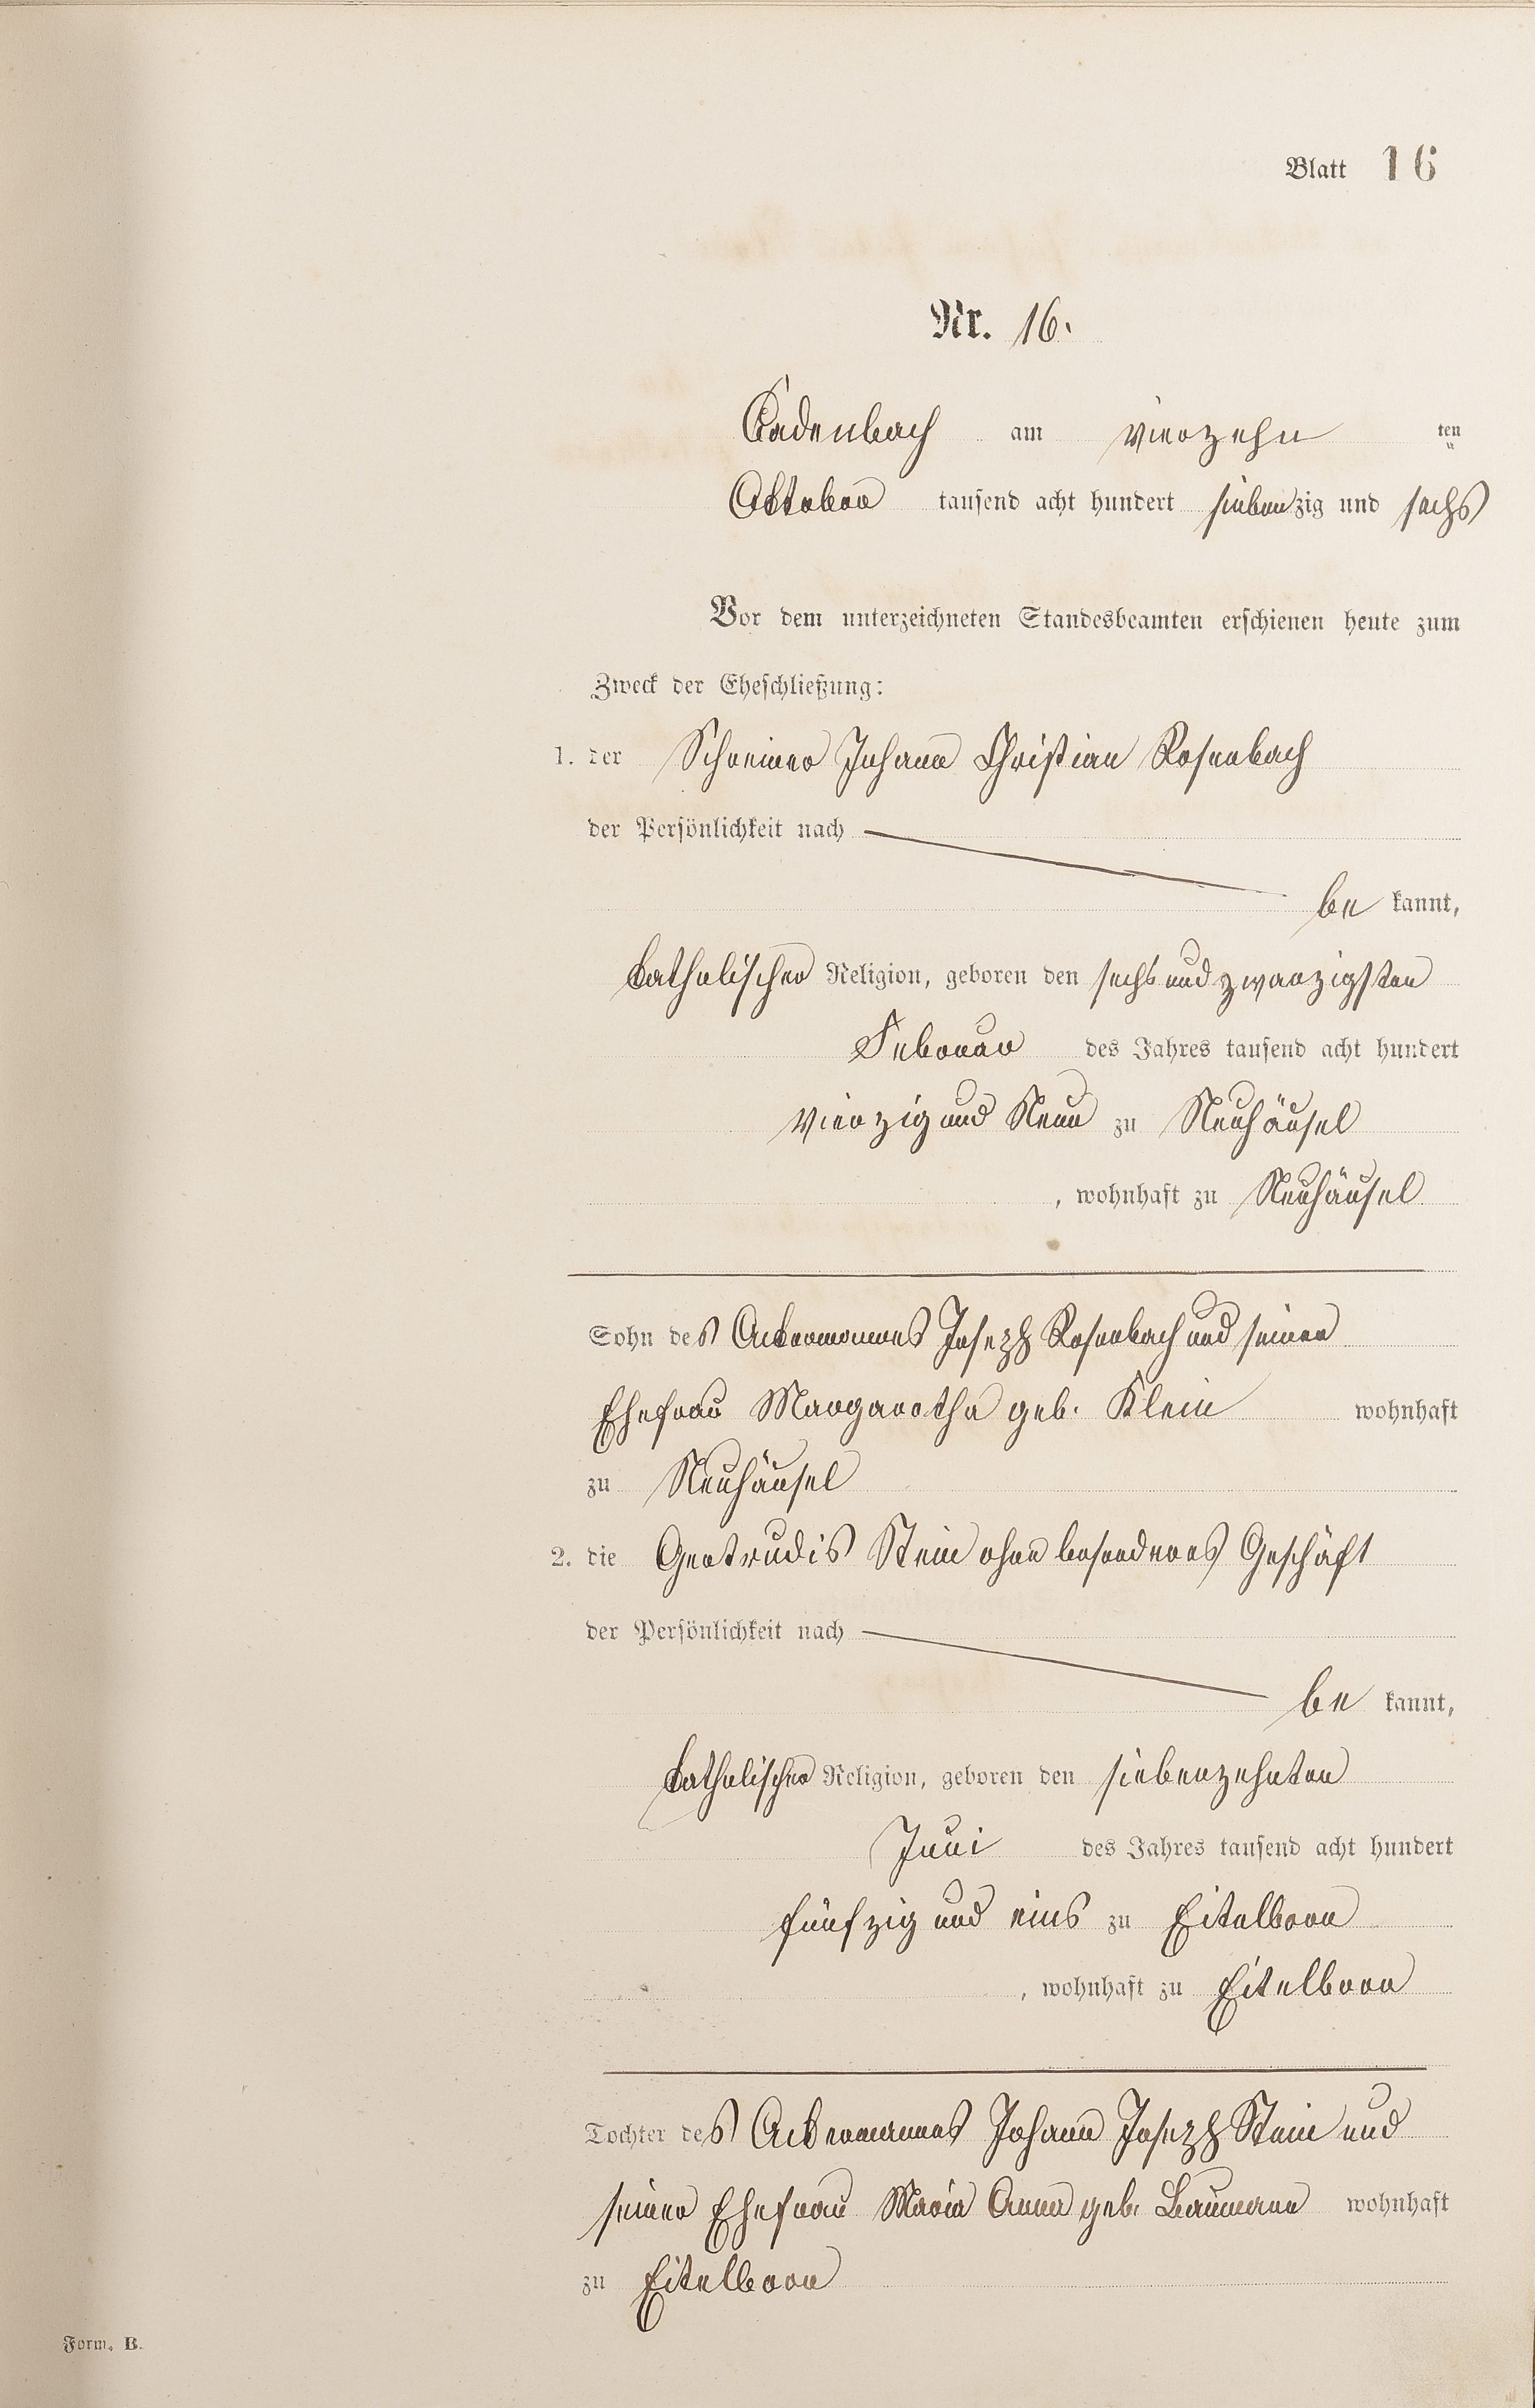 Blatt 16
Nr. 16.
Cadenbach am vierzehn ten
Oktober tausend acht hundert siebenzig und sechs
Vor dem unterzeichneten Standesbeamten erschienen heute zum
Zweck der Eheschließung:
1. der Schreiner Johann Christian Rosenbach
der Persönlichkeit nach
be kannt,
katholischer Religion, geboren den sechs und zwanzigsten
Februar des Jahres tausend acht hundert
vierzig und Neun zu Neuhäusel
, wohnhaft zu Neuhäusel
Sohn des Ackermannes Joseph Rosenbach und seiner
Ehefrau Margaretha geb. Klein wohnhaft
zu Neuhäusel
2. die Gertrudis Stein ohne besonderes Geschäft
der Persönlichkeit nach
be kannt,
katholischer Religion, geboren den siebenzehnten
Juni des Jahres tausend acht hundert
fünfzig und eins zu Eitelborn
, wohnhaft zu Eitelborn
Tochter des Ackermannes Johann Joseph Stein und
seiner Ehefrau Maria Anna geb. Baumann wohnhaft
zu Eitelborn
Form. B.